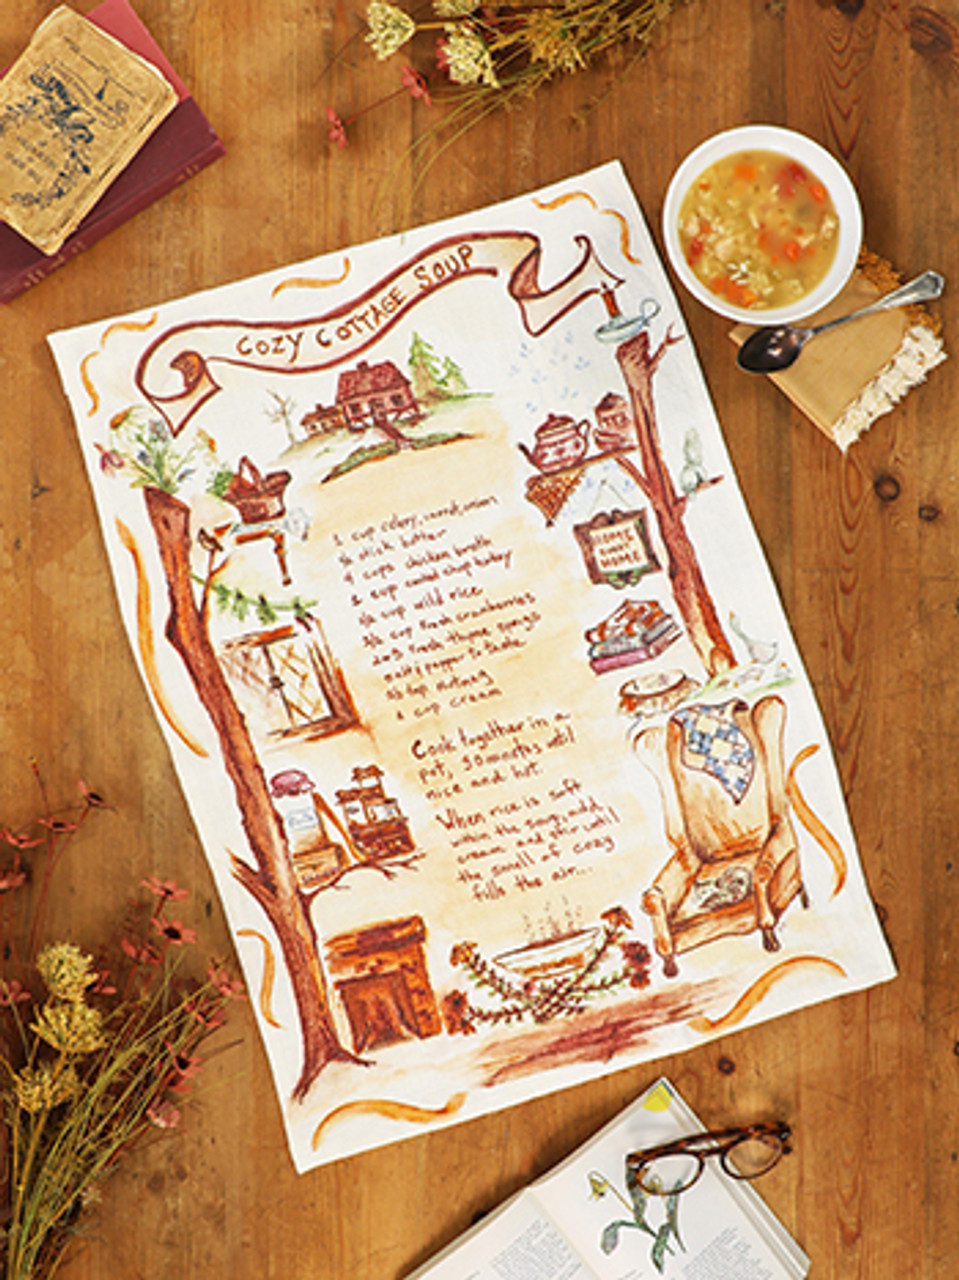 COZY COTTAGE SOUP
1 cup celery, carrot, onion
½ stick butter
4 cups chicken broth
1 cup cooked chop turkey
½ cup wild rice
¾ cup fresh cranberries
2-3 fresh thyme sprigs
salt & pepper to taste
tsp nutmeg
1 cup cream
Cook together in a
pot, 30 minutes until
nice and hot.
When rice is soft
within the soup, add
cream and stir until
the smell of cozy
fills the air...
HOME
SWEET
HOME